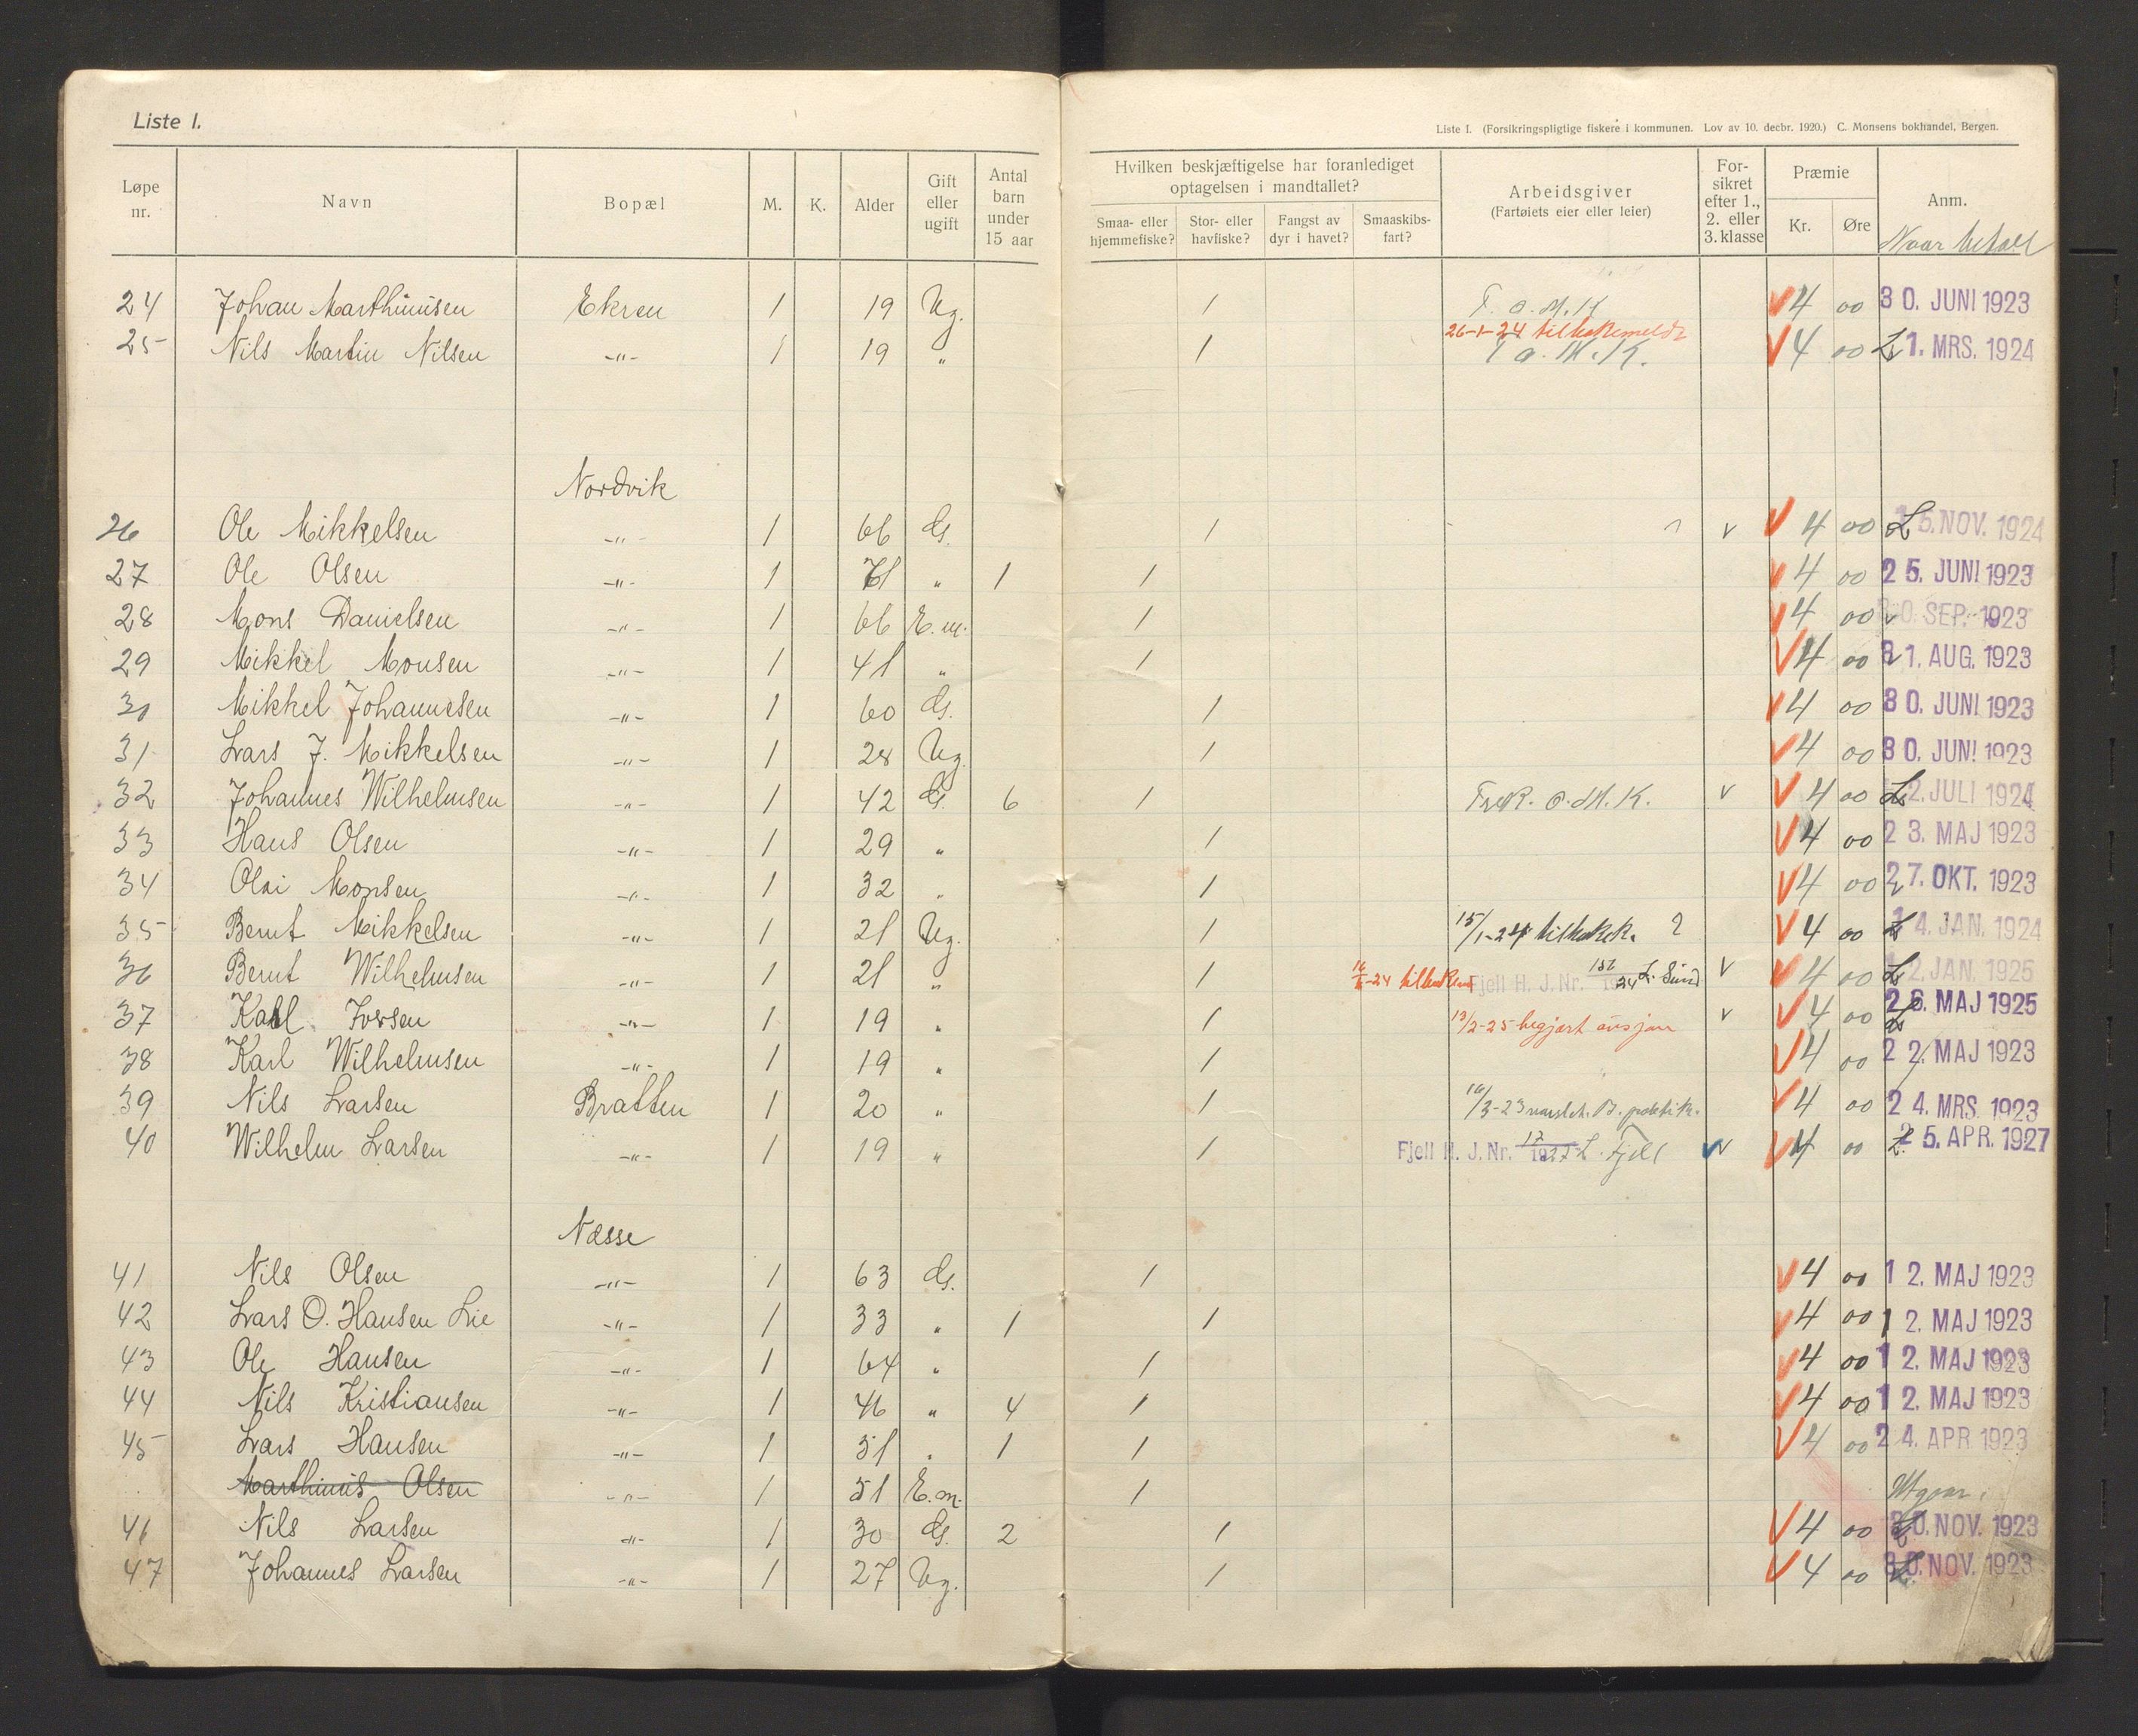 Liste I.
Liste I. (Forsikringspligtige fiskere i kommunen. Lov av 10. decbr. 1920.) C. Monsens bokhandel, Bergen.
Løpe nr. Navn Bopæl M. K. Alder Gift eller ugift Antal barn under 15 aar Hvilken beskjæftigelse har foranlediget optagelsen i mandtallet? Smaa- eller hjemmefiske? Stor- eller havfiske? Fangst av dyr i havet? Smaaskibs-fart? Arbeidsgiver (Fartøiets eier eller leier) For-sikret efter 1., 2. eller 3. klasse Præmie Kr. Øre Anm.
Naar betalt
24 Johan Marthinusen Ekren 1 19 Ug. 1 F. o. M. K V 4 00 30. JUNI 1923
26-1-24 tilbakemeldt
25 Nils Martin Nilsen -"- 1 19 " 1 F o. M. K. V 4 00 L 1. MRS. 1924
Nordvik
26 Ole Mikkelsen -"- 1 66 G. 1 v V 4 00 L 5. NOV. 1924
27 Ole Olsen -"- 1 71 " 1 1 V 4 00 25. JUNI 1923
28 Mons Danielsen -"- 1 66 E.m. 1 V 4 00 30. SEP. 1923
29 Mikkel Monsen -"- 1 41 " 1 V 4 00 31. AUG. 1923
30 Mikkel Johannesen -"- 1 60 G. 1 V 4 00 30. JUNI 1923
31 Lars J. Mikkelsen -"- 1 28 Ug. 1 V 4 00 30. JUNI 1923
32 Johannes Wilhelmsen -"- 1 42 G. 6 1 o. M. K. v V 4 00 L 2. JULI 1924
33 Hans Olsen -"- 1 29 " 1 V 4 00 23. MAJ 1923
34 Olai Monsen -"- 1 32 " 1 V 4 00 27. OKT. 1923
35 Bernt Mikkelsen -"- 1 21 Ug. 1 15/1-24 tilbakek. ? V 4 00 4. JAN. 1924
36 Bernt Wilhelmsen -"- 1 21 " 1 Fjell H. J. Nr. 24 L. Sund v V 4 00 L 2. JAN. 1925
37 Karl Iversen -"- 1 19 " 1 13/2-25 begjært v V 4 00 26. MAJ 1925
38 Karl Wilhelmsen -"- 1 19 " 1 V 4 00 22. MAJ 1923
39 Nils Larsen Bratten 1 20 " 1 16/3-23 V 4 00 24. MRS. 1923
40 Wilhelm Larsen -"- 1 19 " 1 Fjell H. J. Nr. 17/1927 L. Fjell v V 4 00 L. 25. APR. 1927
Næsse
41 Nils Olsen -"- 1 63 G. 1 V 4 00 12. MAJ 1923
42 Lars O. Hansen Lie -"- 1 33 " 1 1 V 4 00 12. MAJ 1923
43 Ole Hansen -"- 1 64 " 1 V 4 00 12. MAJ 1923
44 Nils Kristiansen -"- 1 46 " 4 1 V 4 00 12. MAJ 1923
45 Lars Hansen -"- 1 51 " 1 1 V 4 00 24. APR 1923
Marthinus Olsen -"- 1 51 E.m. 1 Utgaar.
46 Nils Larsen -"- 1 30 G. 2 1 V 4 00 30. NOV. 1923
47 Johannes Larsen -"- 1 27 Ug. 1 V 4 00 30. NOV. 1923